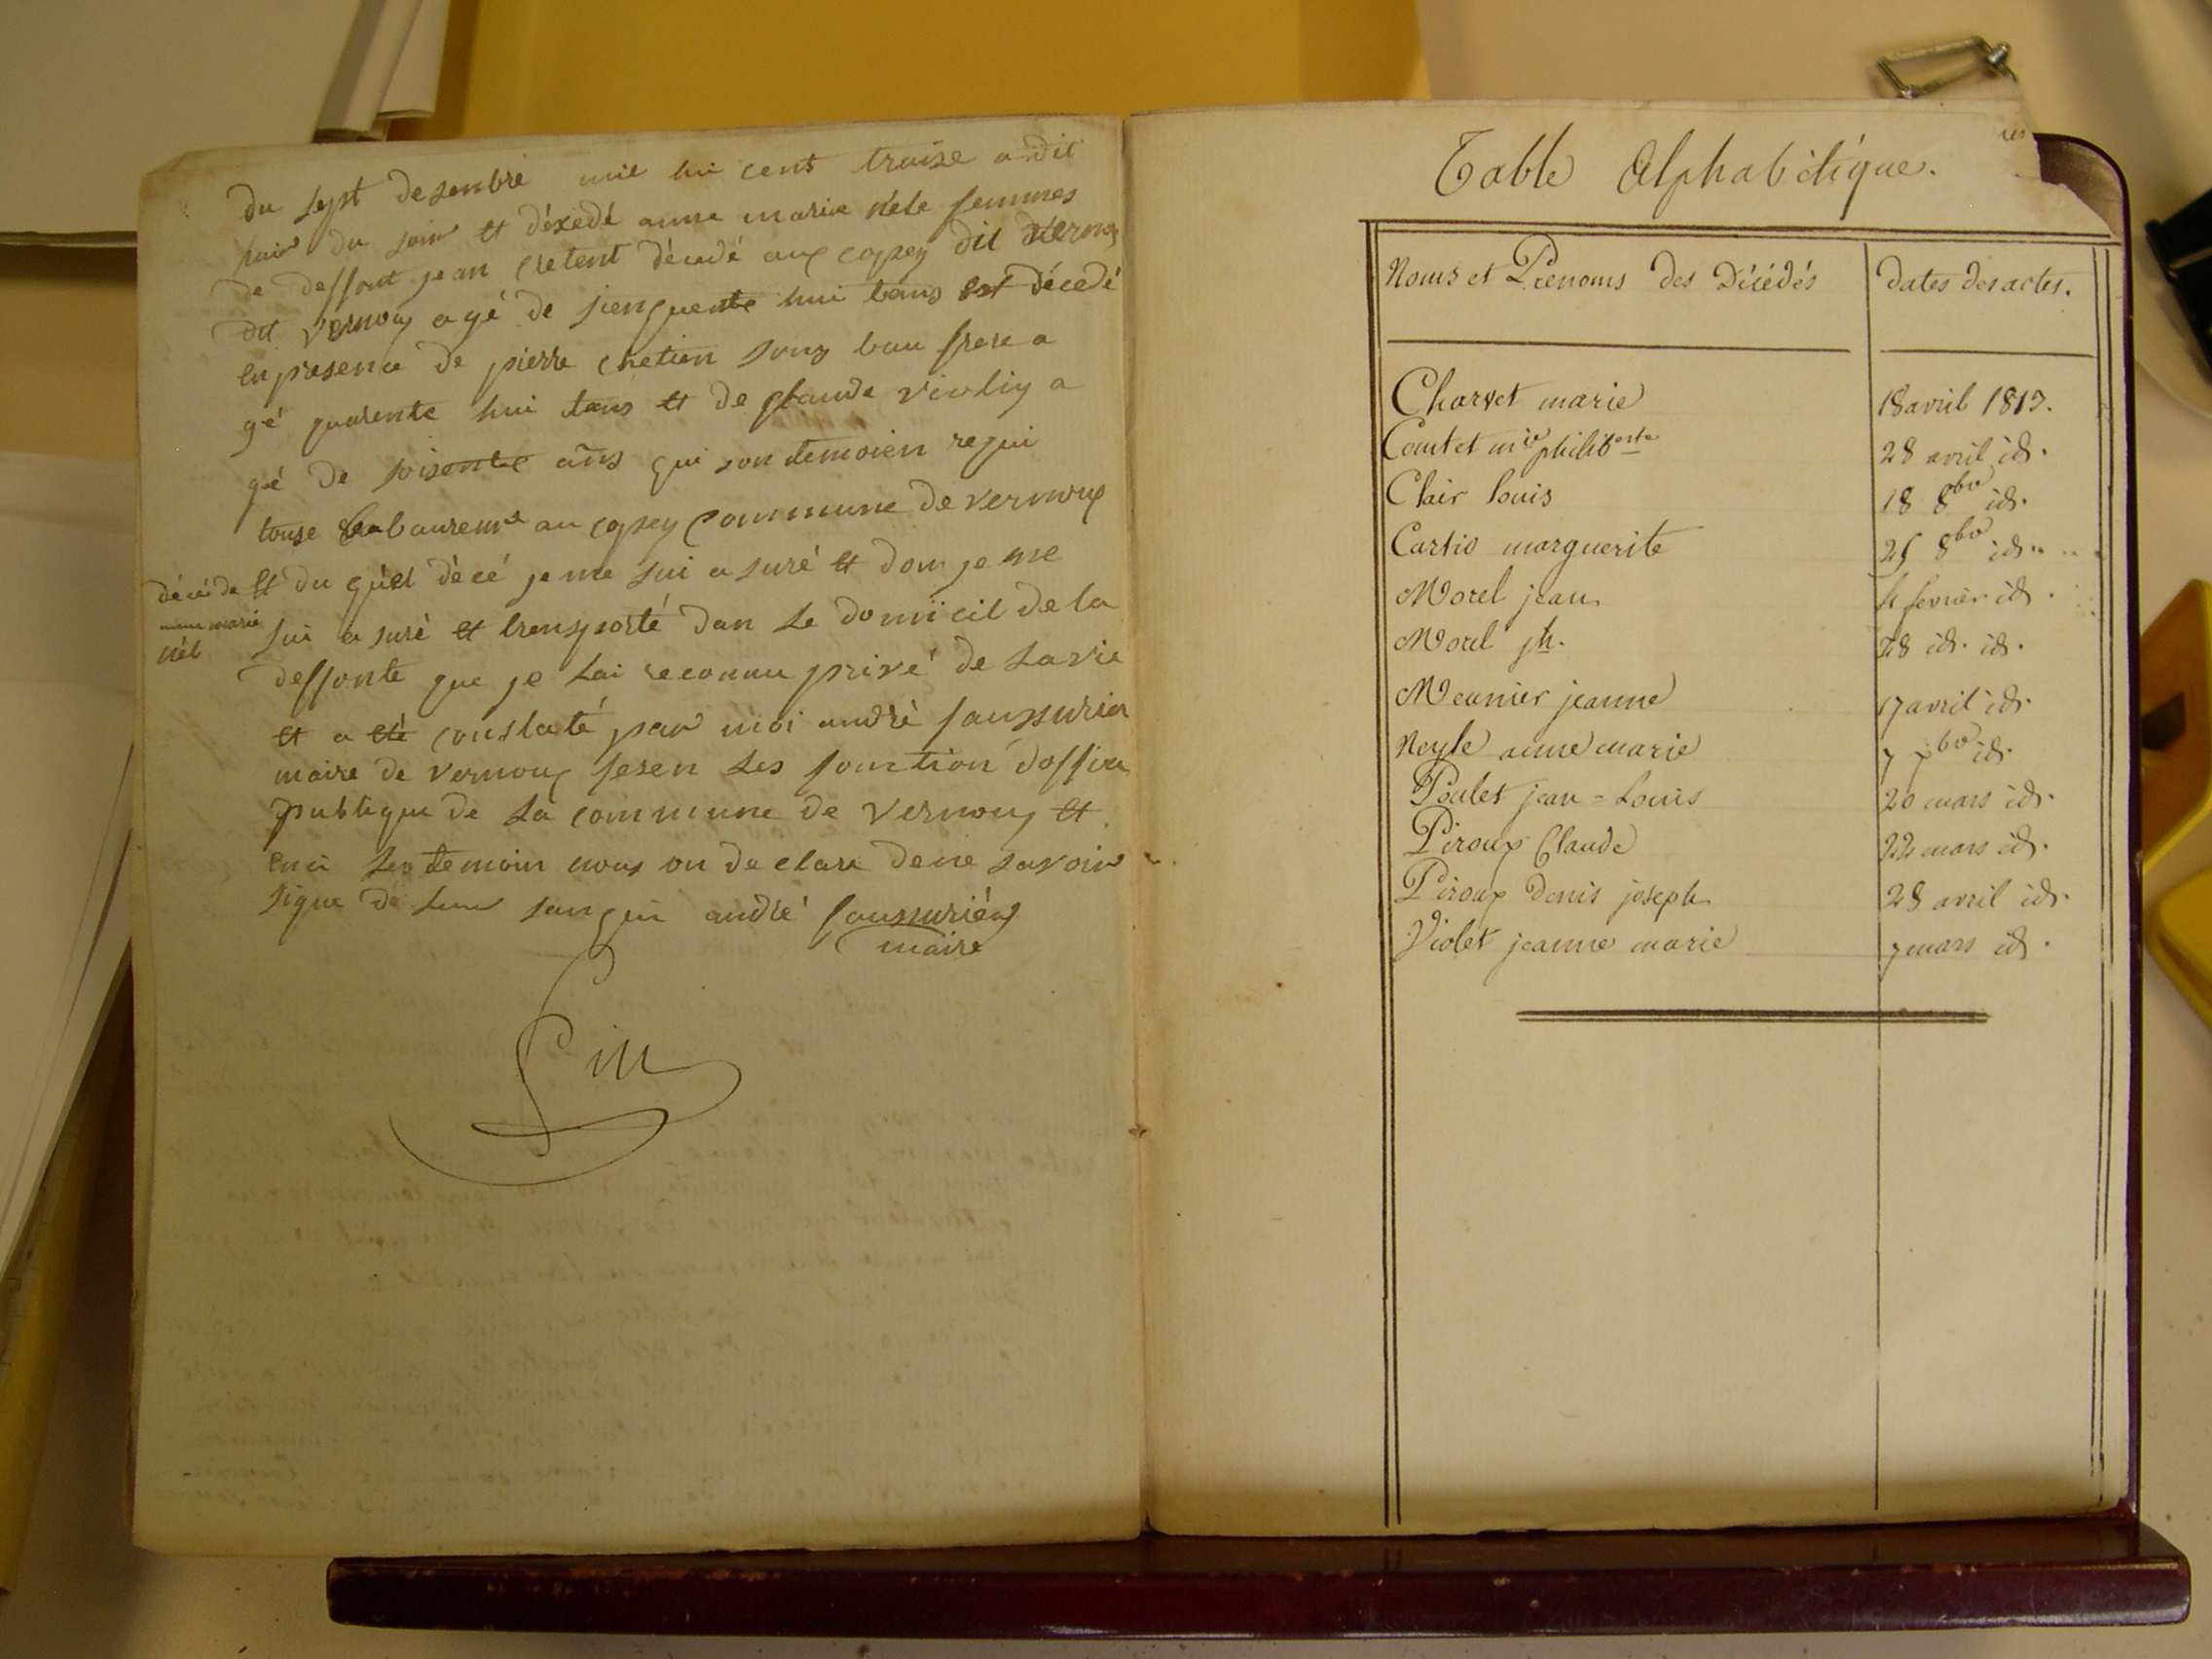 du sept desenbre mil hui cent traise a dit
huir du soir et déxedé anne marie nele femmes
de deffont jean cretent décedé aux copsey dit vernoy
dit vernoy agé de sienquente hui tans est décedé
en presence de pierre chetien sons bau frere a
gé quarente hui tans et de glaude violiy a
gé de soisente ans qui son temoien requi
touse labaureure au copsey commune de vernoux
et du quel décé je me sui asuré et don je me
décé de
anne marie
nél
sui asuré et trensporté dan le domicil de la
deffonte que je lai reconnu privé de la vie
et a été constaté par moi andré saussurier
maire de vernoux fesen les fonction d'officier
publique de la commune de vernoux et
les temoin nous on declare de ne savoir
signe de leur andré saussuriér
maire
fin
Table Alphabétique.
Noms et Prenoms des Décédés
dates des actes.
Charvet marie 18 avril 1813.
Coutet mie philiberte 28 avril id.
Clair louis 18 8bre id.
Cartio marguerite 25 8bre id.
Morel jean 4 fevrier id.
Morel jh. 28 id. id.
Meunier jeanne 17 avril id.
Neyle anne marie 7 xbre id.
Poulet jean = Louis 20 mars id.
Piroux Claude 22 mars id.
Piroux denis joseph 28 avril id.
Violet jeanne marie 7 mars id.